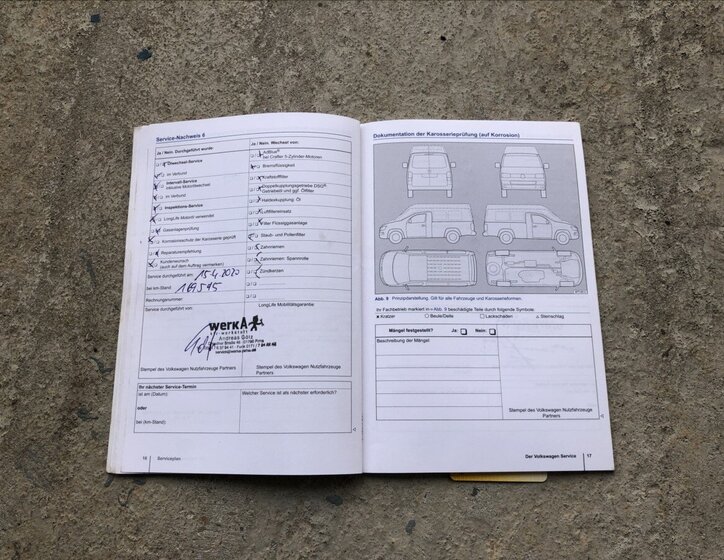 Service-Nachweis 6
Ja / Nein. Durchgeführt wurde:
Ölwechsel-Service
im Verbund
Intervall-Service
inklusive Motorölwechsel
im Verbund
Inspektions-Service
LongLife Motoröl verwendet
Gasanlagenprüfung
Korrosionsschutz der Karosserie geprüft
Reparaturempfehlung
Kundenwunsch
(auch auf dem Auftrag vermerken)
Service durchgeführt am: 15.4.2020
bei km-Stand: 169 595
Rechnungsnummer:
Service durchgeführt von:
werkA
kfz-werkstatt
Andreas Götz
Stempel des Volkswagen Nutzfahrzeuge Partners
Ja / Nein. Wechsel von:
AdBlue®
bei Crafter 5-Zylinder-Motoren
Bremsflüssigkeit
Kraftstofffilter
Doppelkupplungsgetriebe DSG®:
Getriebeöl und ggf. Ölfilter
Haldexkupplung: Öl
Luftfiltereinsatz
Filter Flüssiggasanlage
Staub- und Pollenfilter
Zahnriemen
Zahnriemen: Spannrolle
Zündkerzen
LongLife Mobilitätsgarantie
Stempel des Volkswagen Nutzfahrzeuge
Partners
Ihr nächster Service-Termin
ist am (Datum):
oder
bei (km-Stand):
Welcher Service ist als nächster erforderlich?
16 Serviceplan
Dokumentation der Karosserieprüfung (auf Korrosion)
Abb. 9 Prinzipdarstellung. Gilt für alle Fahrzeuge und Karosserieformen.
Ihr Fachbetrieb markiert in ⇒Abb. 9 beschädigte Teile durch folgende Symbole:
Kratzer Beule/Delle Lackschäden Steinschlag
Mängel festgestellt? Ja: Nein:
Beschreibung der Mängel:
Stempel des Volkswagen Nutzfahrzeuge
Partners
Der Volkswagen Service 17